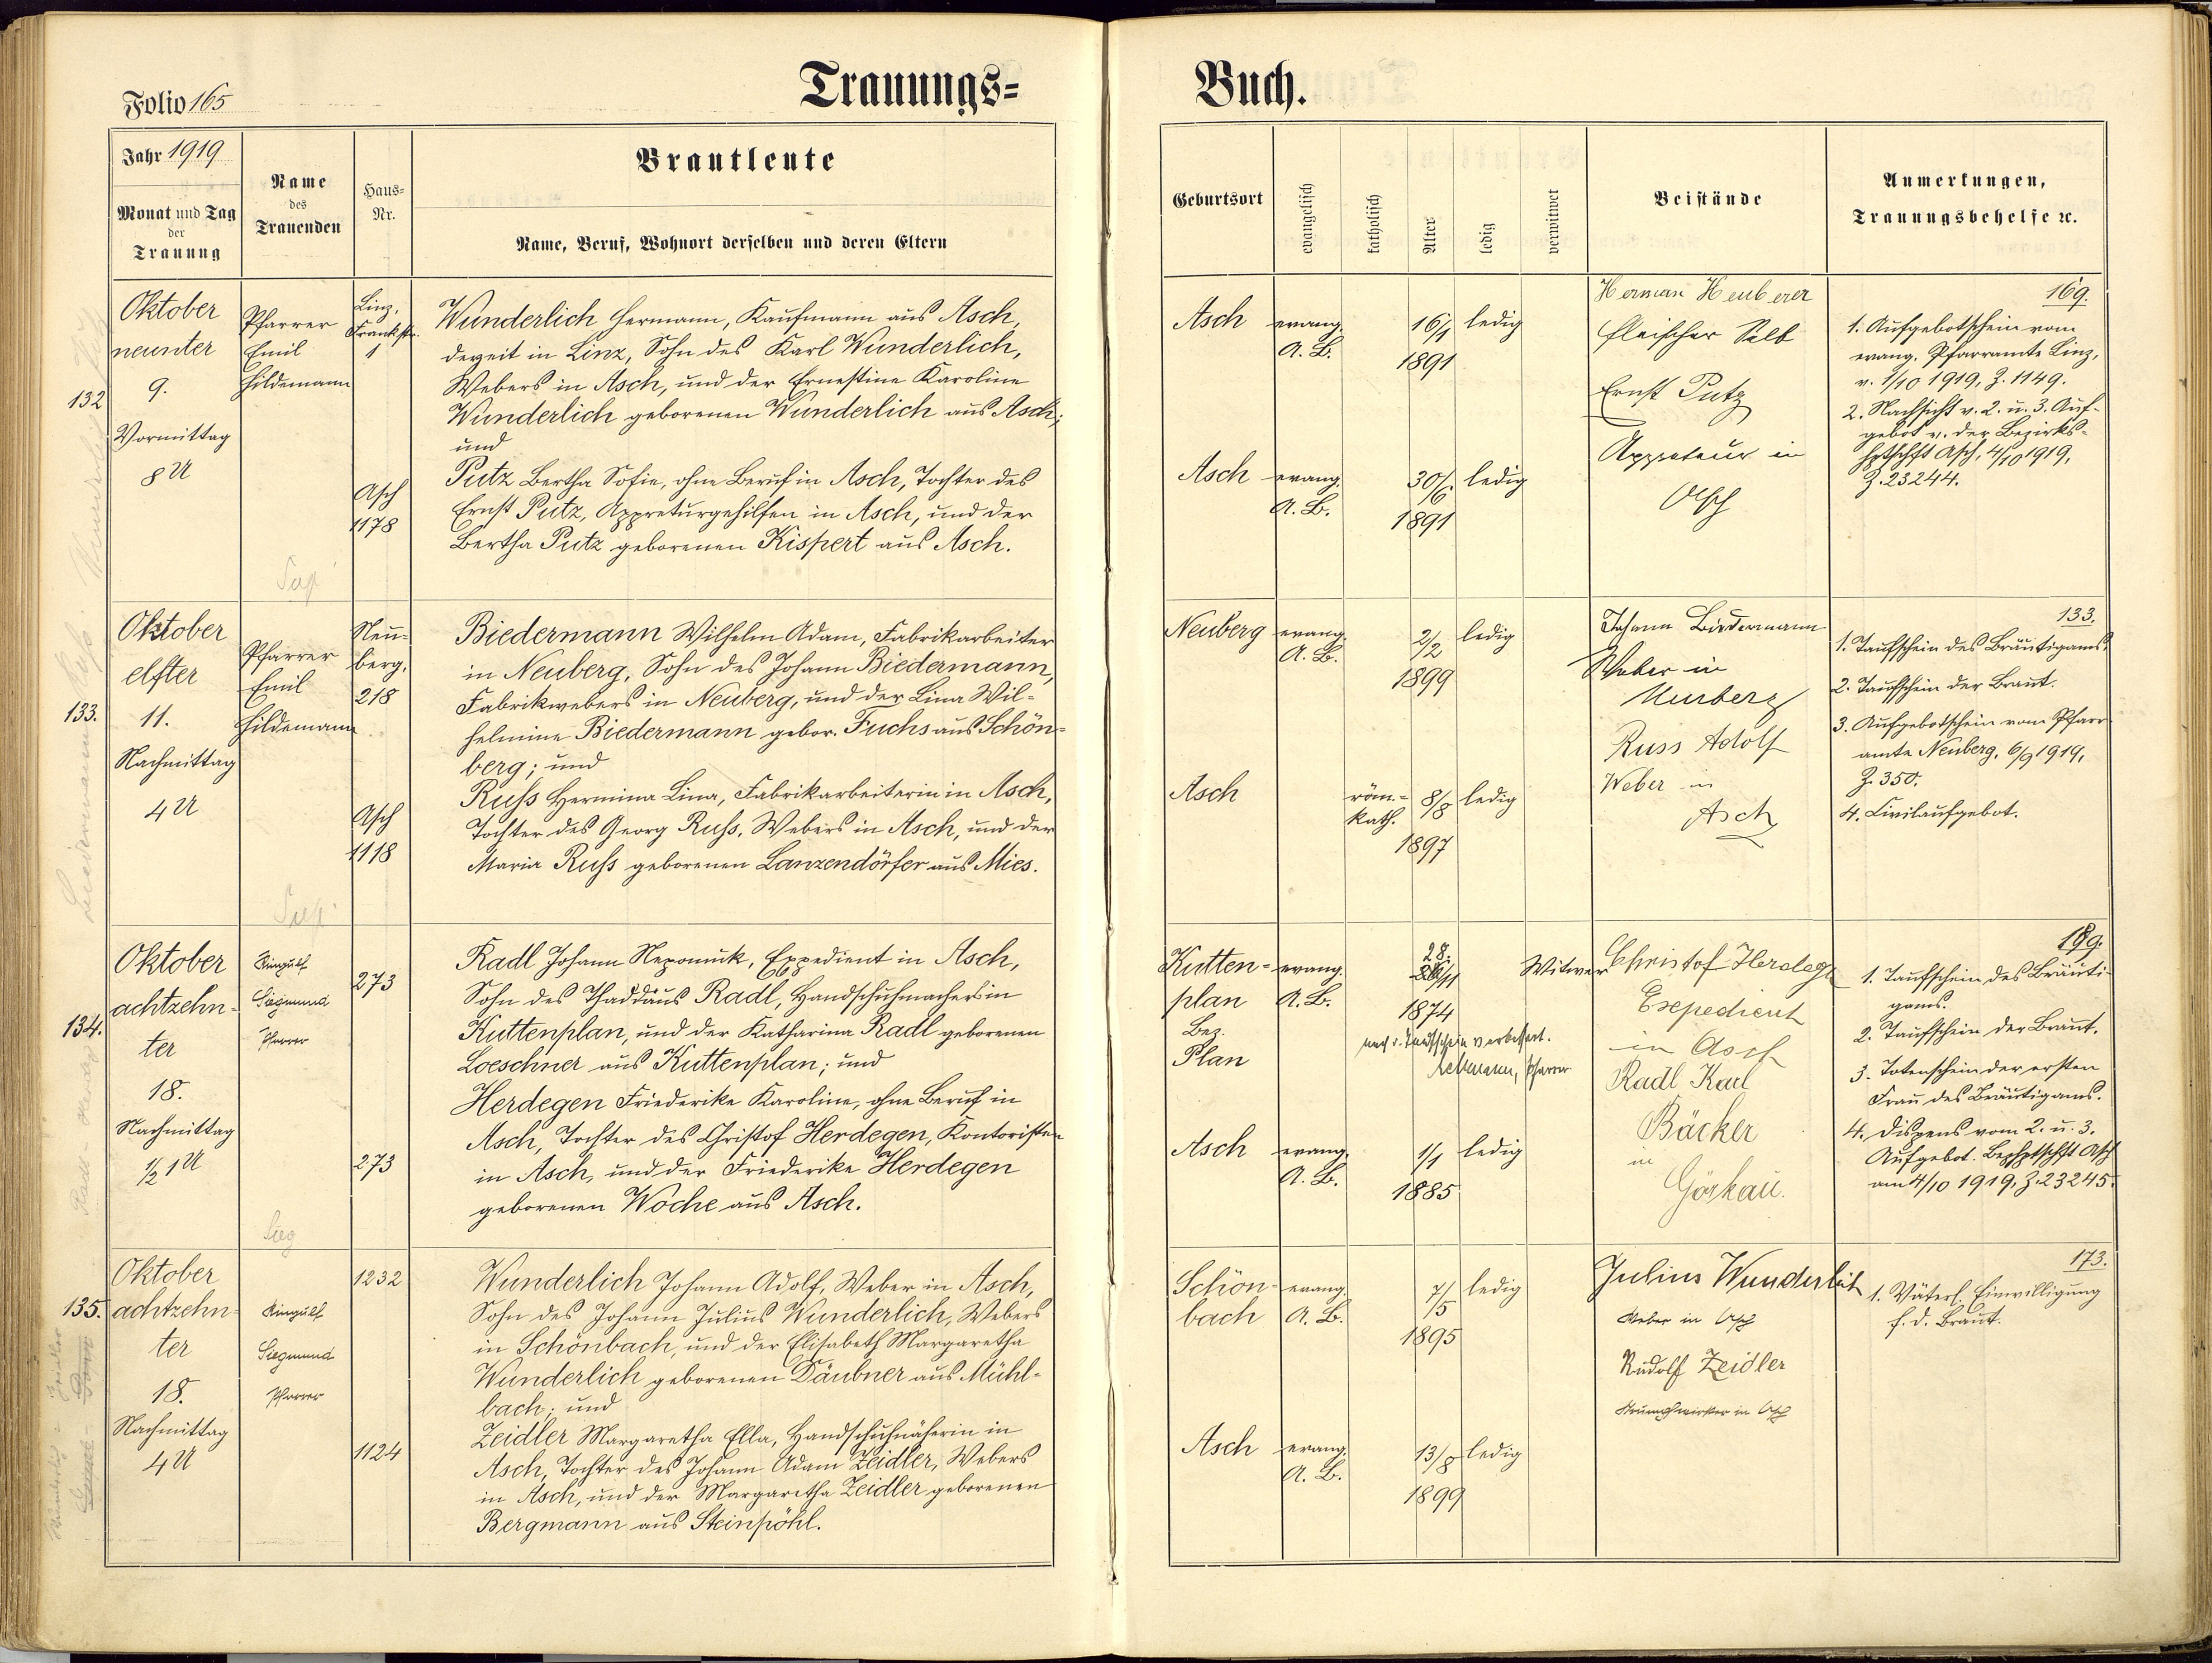 Trauungs=
Buch.
Folio 165
Jahr 1919
Monat und Tag
der
Trauung
Name
des
Trauenden
Haus=
Nr.
Brautleute
Name, Beruf, Wohnort derselben und deren Eltern
Geburtsort
evangelisch
katholisch
Alter
ledig
verwitwet
Beistände
Anmerkungen,
Trauungsbehelfe ꝛc.
132
Oktober
neunter
9.
Vormittag
8 U
Pfarrer
Emil
Hildemann
Linz,
Frankstr.
1
Asch
1178
Wunderlich Hermann, Kaufmann aus Asch,
derzeit in Linz, Sohn des Karl Wunderlich,
Webers in Asch, und der Ernestine Karoline
Wunderlich geborenen Wunderlich aus Asch;
und
Putz Bertha Sofie, ohne Beruf in Asch, Tochter des
Ernst Putz, Appreturgehilfen in Asch, und der
Bertha Putz geborenen Kispert aus Asch.
Asch
evang.
A. B.
16/1
1891
ledig
Asch
evang.
A. B.
30/6
1891
ledig
Herman Heuberer
Fleischer Selb
Ernst Putz
Appreteur in
Asch
169.
1. Aufgebotschein vom
evang. Pfarramte Linz,
v. 1/10 1919, Z. 1149.
2. Nachsicht v. 2. u. 3. Auf-
gebot v. der Bezirks-
hptschft Asch, 4/10 1919,
Z. 23244.
133.
Oktober
elfter
11.
Nachmittag
4 U
Pfarrer
Emil
Hildemann
Neu=
berg,
218
Asch
1118
Biedermann Wilhelm Adam, Fabrikarbeiter
in Neuberg, Sohn des Johann Biedermann,
Fabrikwebers in Neuberg, und der Lina Wil-
helmine Biedermann gebor. Fuchs aus Schön=
berg; und
Russ Hermina Lina, Fabrikarbeiterin in Asch,
Tochter des Georg Russ, Webers in Asch, und der
Maria Russ geborenen Lanzendörfer aus Mies.
Neuberg
evang.
A. B.
2/2
1899
ledig
Asch
röm.=
kath.
8/8
1897
ledig
Johann Biedermann
Weber in
Neuberg
Russ Adolf
Weber in
Asch
133.
1. Taufschein des Bräutigams.
2. Taufschein der Braut.
3. Aufgebotschein vom Pfarr
amte Neuberg, 6/9 1919,
Z. 350.
4. Civilaufgebot.
134.
Oktober
achtzehn=
ter
18.
Nachmittag
1/2 1 U
Siegmund
Pfarrer
273
273
Radl Johann Nepomuk, Expedient in Asch,
Sohn des Thaddäus Radl, Handschuhmachers in
Kuttenplan, und der Katharina Radl geborenen
Loeschner aus Kuttenplan; und
Herdegen Friederike Karoline, ohne Beruf in
Asch, Tochter des Christof Herdegen, Kontoristen
in Asch, und der Friederike Herdegen
geborenen Woche aus Asch.
Kutten=
plan
Bez.
Plan
evang.
A. B.
28.
1874
Witwer
nach d. Taufschein verbessert.
Pfarrer
Asch
evang.
A. B.
1/1
1885
ledig
Christof Herdegen
Expedient
in Asch
Radl Karl
Bäcker
in
Görkau.
199.
1. Taufschein des Bräuti-
gams.
2. Taufschein der Braut.
3. Totenschein der ersten
Frau des Bräutigams.
4. Dispens vom 2. u. 3.
Aufgebot. Bezhptschft Asch
am 4/10 1919, Z. 23245.
135.
Oktober
achtzehn=
ter
18.
Nachmittag
4 U
Siegmund
Pfarrer
1232
1124
Wunderlich Johann Adolf, Weber in Asch,
Sohn des Johann Julius Wunderlich, Webers
in Schönbach, und der Elisabeth Margaretha
Wunderlich geborenen Däubner aus Mühl-
bach; und
Zeidler Margaretha Ella, Handschuhnäherin in
Asch, Tochter des Johann Adam Zeidler, Webers
in Asch, und der Margaretha Zeidler geborenen
Bergmann aus Steinpöhl.
Schön=
bach
evang.
A. B.
7/5
1895
ledig
Asch
evang.
A. B.
13/8
1899
ledig
Julius Wunderlich
Weber in Asch
Rudolf Zeidler
Strumpfwirker in Asch
173.
1. Väterl. Einwilligung
f. d. Braut.